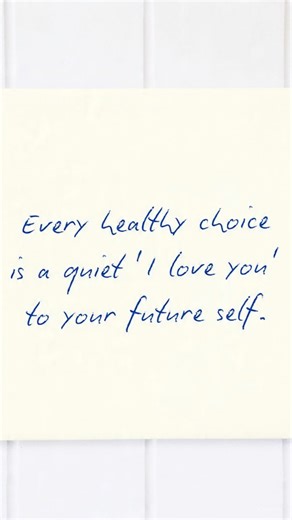 Every healthy choice
is a quiet 'I love you'
to your future self.